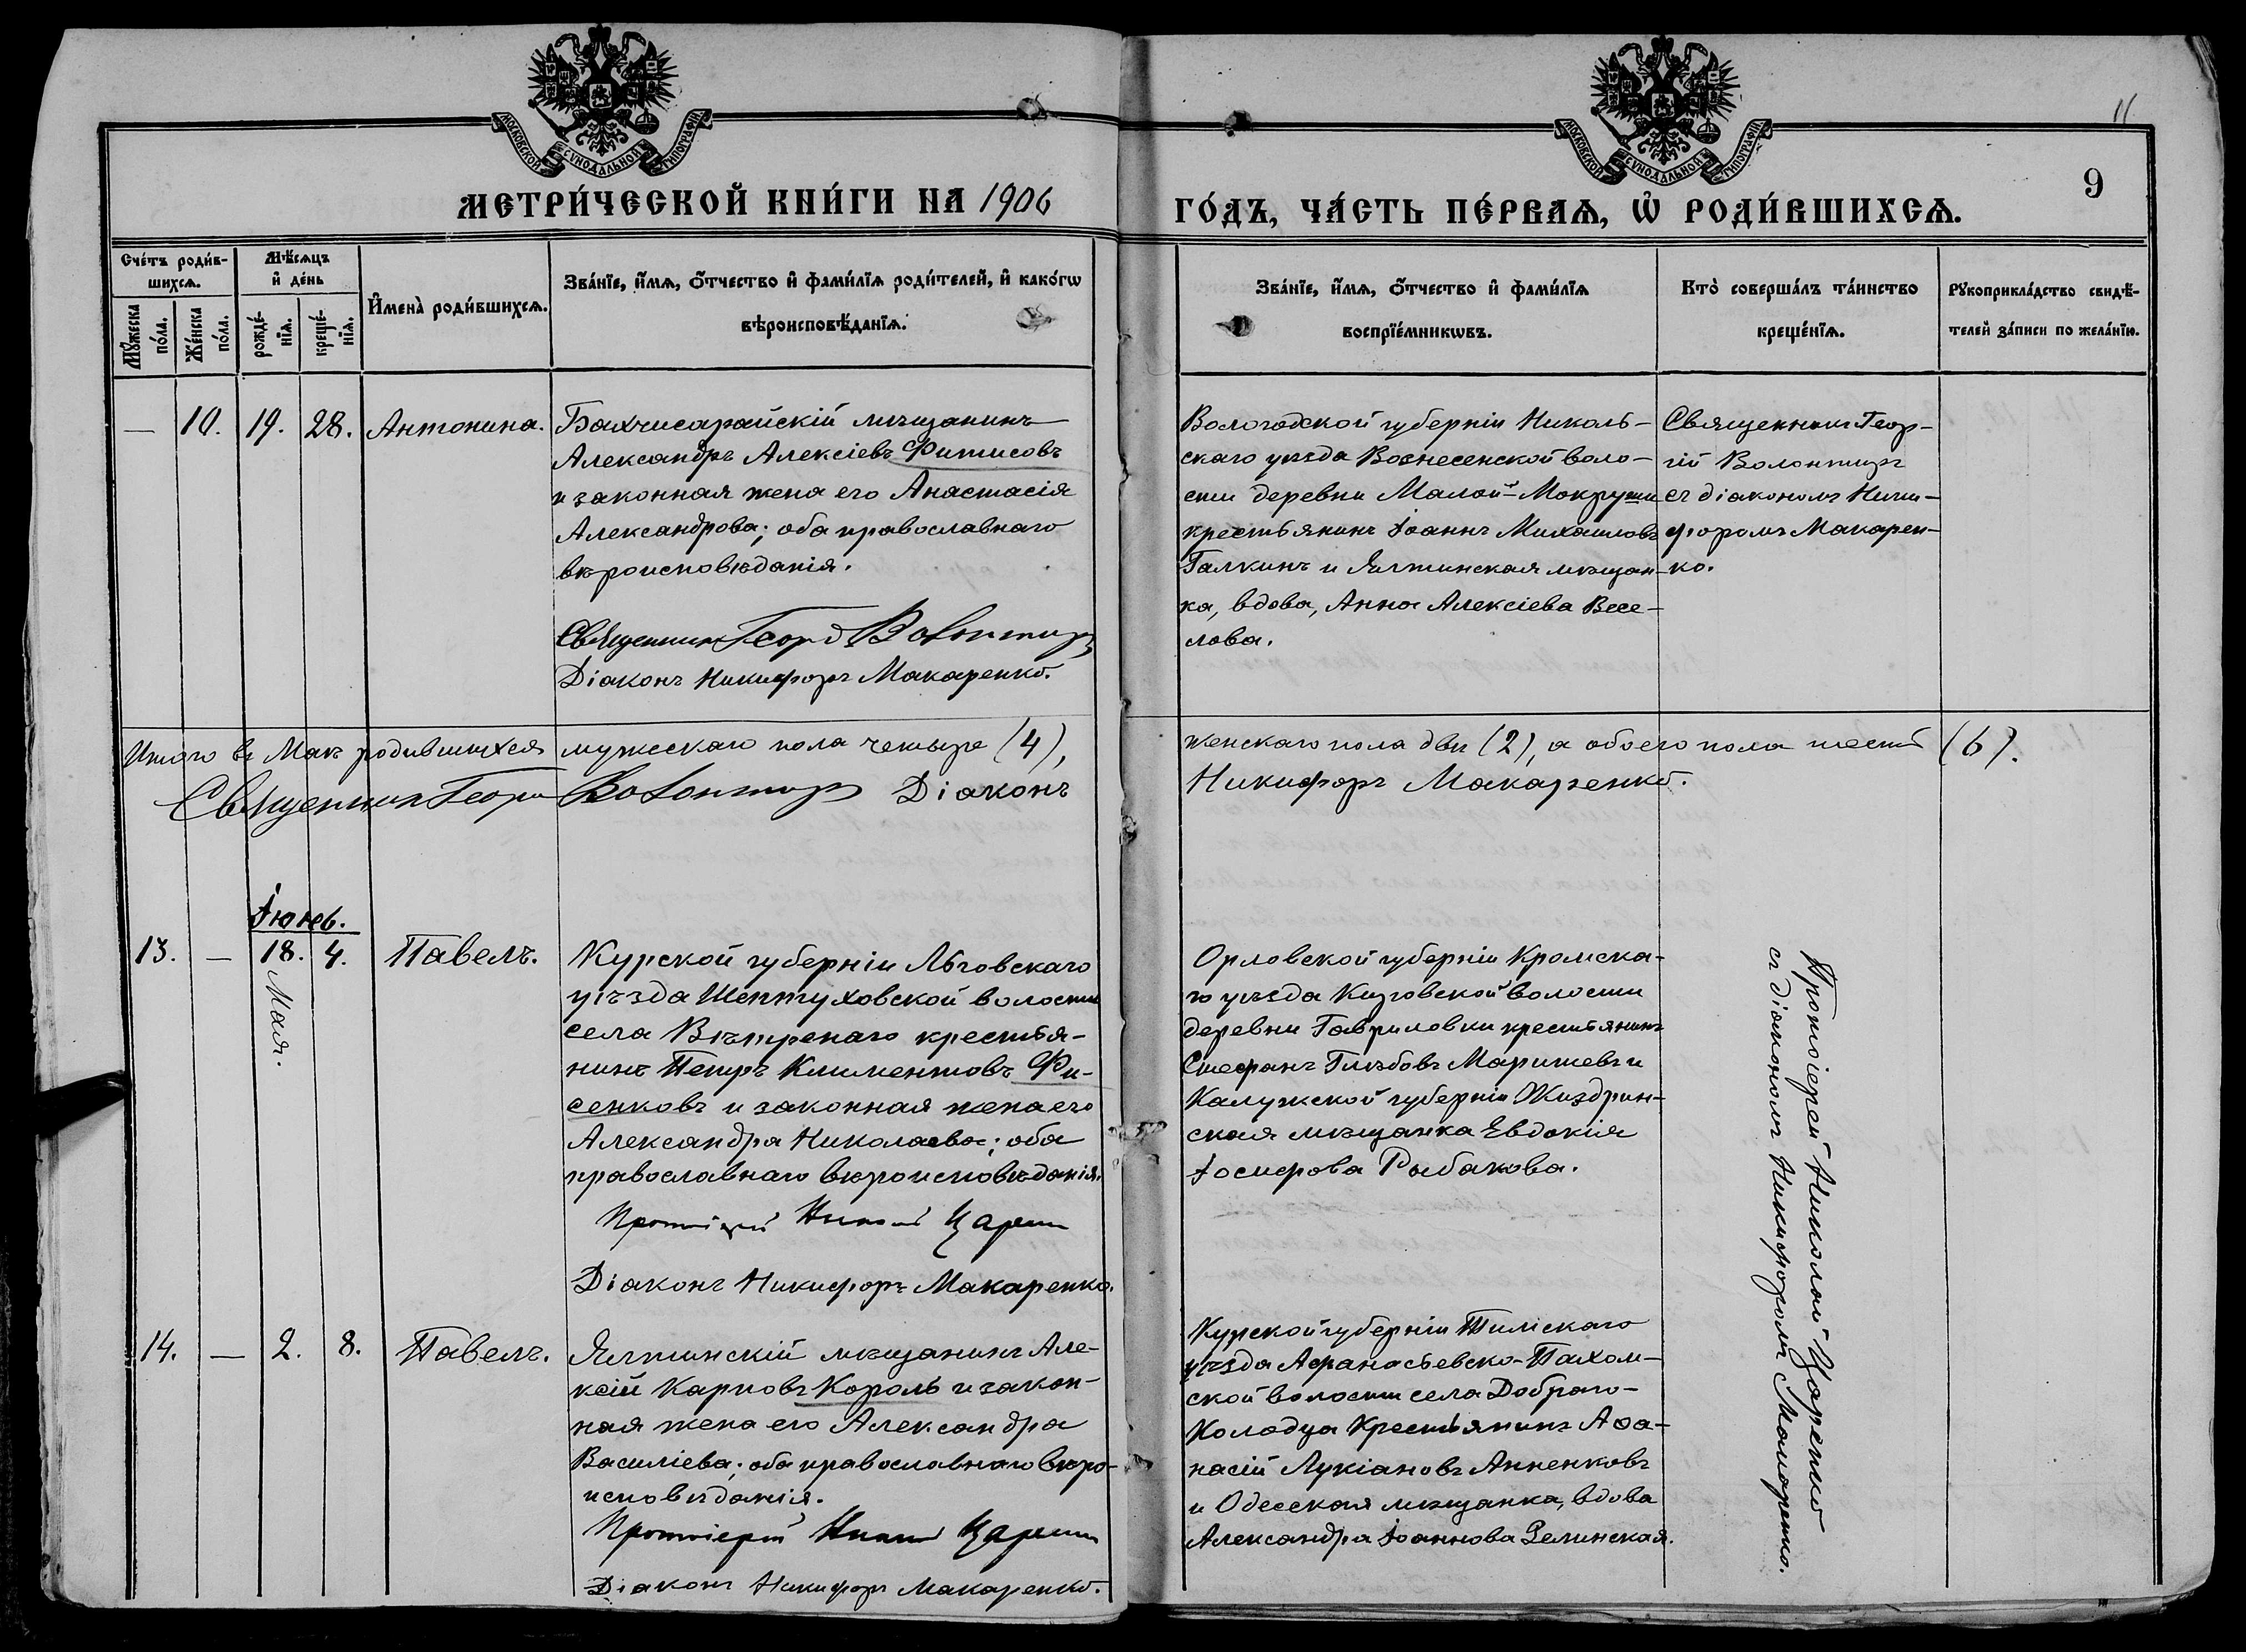 МОСКОВСКОЙ СѴНОДАЛЬНОЙ ТИПОГРАФІИ
МОСКОВСКОЙ СѴНОДАЛЬНОЙ ТИПОГРАФІИ
11
9
МЕТРИ́ЧЕСКОЙ КНИ́ГИ НА 1906
ГО́ДЪ, ЧА́СТЬ ПЕ́РВАѦ, Ѡ҆ РОДИ́ВШИХСѦ.
Сче́тъ роди́в-
шихсѧ.
Мꙋ́жеска
по́ла.
Же́нска
по́ла.
Мѣ́сѧцъ
и҆ де́нь
рожде́-
нїѧ.
креще́-
нїѧ.
И҆мена̀ роди́вшихсѧ.
Зва́нїе, и҆́мѧ, ѻ҆́тчество и҆ фами́лїѧ роди́телей, и҆ како́гѡ
вѣроисповѣ́данїѧ.
Зва́нїе, и҆́мѧ, ѻ҆́тчество и҆ фами́лїѧ
воспрїе́мникѡвъ.
Кто̀ соверша́лъ та́инство
креще́нїѧ.
Рꙋкоприкла́дство свидѣ́-
телей за́писи по жела́нїю.
— 10. 19. 28. Антонина.
Бахчисарайскій мѣщанинъ
Александръ Алексіевъ Фитисовъ
и законная жена его Анастасія
Александрова; оба православнаго
вѣроисповѣданія.
Священникъ Георг. Волонтиръ
Діаконъ Никифоръ Макаренко.
Вологодской губерніи Николь-
скаго уѣзда Вознесенской воло-
сти деревни Малой-Мокруши
крестьянинъ Іоаннъ Михаиловъ
Галкинъ и Ялтинская мѣщан-
ка, вдова, Анна Алексіева Весе-
лова.
Священникъ Геор-
гій Волонтиръ
съ діакономъ Ники-
форомъ Макарен-
ко.
Итого въ Маѣ родившихся мужескаго пола четыре (4), женскаго пола двѣ (2), а обоего пола шесть (6).
Священникъ Георгій Волонтиръ Діаконъ Никифоръ Макаренко.
Іюнь.
13. — 18. 4. Павелъ.
Мая.
Курской губерніи Льговскаго
уѣзда Шептуховской волости
села Вѣтренаго крестья-
нинъ Петръ Климентовъ Фи-
сенковъ и законная жена его
Александра Николаева; оба
православнаго вѣроисповѣданія.
Протоіерей Николай Царенко
Діаконъ Никифоръ Макаренко.
Орловской губерніи Кромска-
го уѣзда Кировской волости
деревни Гавриловки крестьянинъ
Стефанъ Глѣбовъ Маришевъ и
Калужской губерніи Жиздрин-
ская мѣщанка Евдокія
Іосифова Рыбакова.
Протоіерей Николай Царенко
съ діакономъ Никифоромъ Макаренко.
14. — 2. 8. Павелъ.
Ялтинскій мѣщанинъ Але-
ксій Карповъ Король и закон-
ная жена его Александра
Василіева; оба православнаго вѣро-
исповѣданія.
Протоіерей Николай Царенко
Діаконъ Никифоръ Макаренко.
Курской губерніи Тимскаго
уѣзда Афанасьевско-Пахом-
ской волости села Добраго-
Колодца крестьянинъ Аѳа-
насій Лукіановъ Анненковъ
и Одесская мѣщанка, вдова
Александра Іоаннова Зелинская.